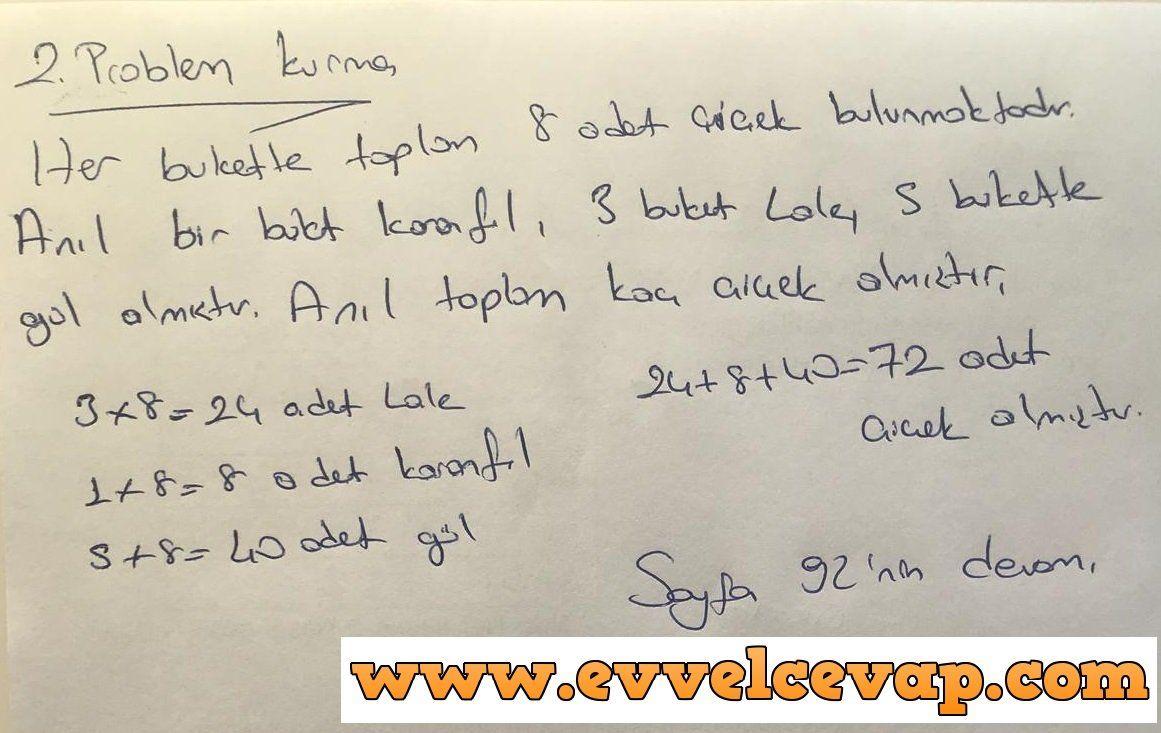 2. Problem kurma
Her bukette toplam 8 adet çiçek bulunmaktadır.
Anıl bir buket karanfil, 3 buket Lale, 5 bukette
gül almıştır. Anıl toplam kaç çiçek almıştır,
3x8=24 adet Lale
1x8=8 adet karanfil
5x8=40 adet gül
24+8+40=72 adet
çiçek almıştır.
Sayfa 92'nin devamı
www.evvelcevap.com